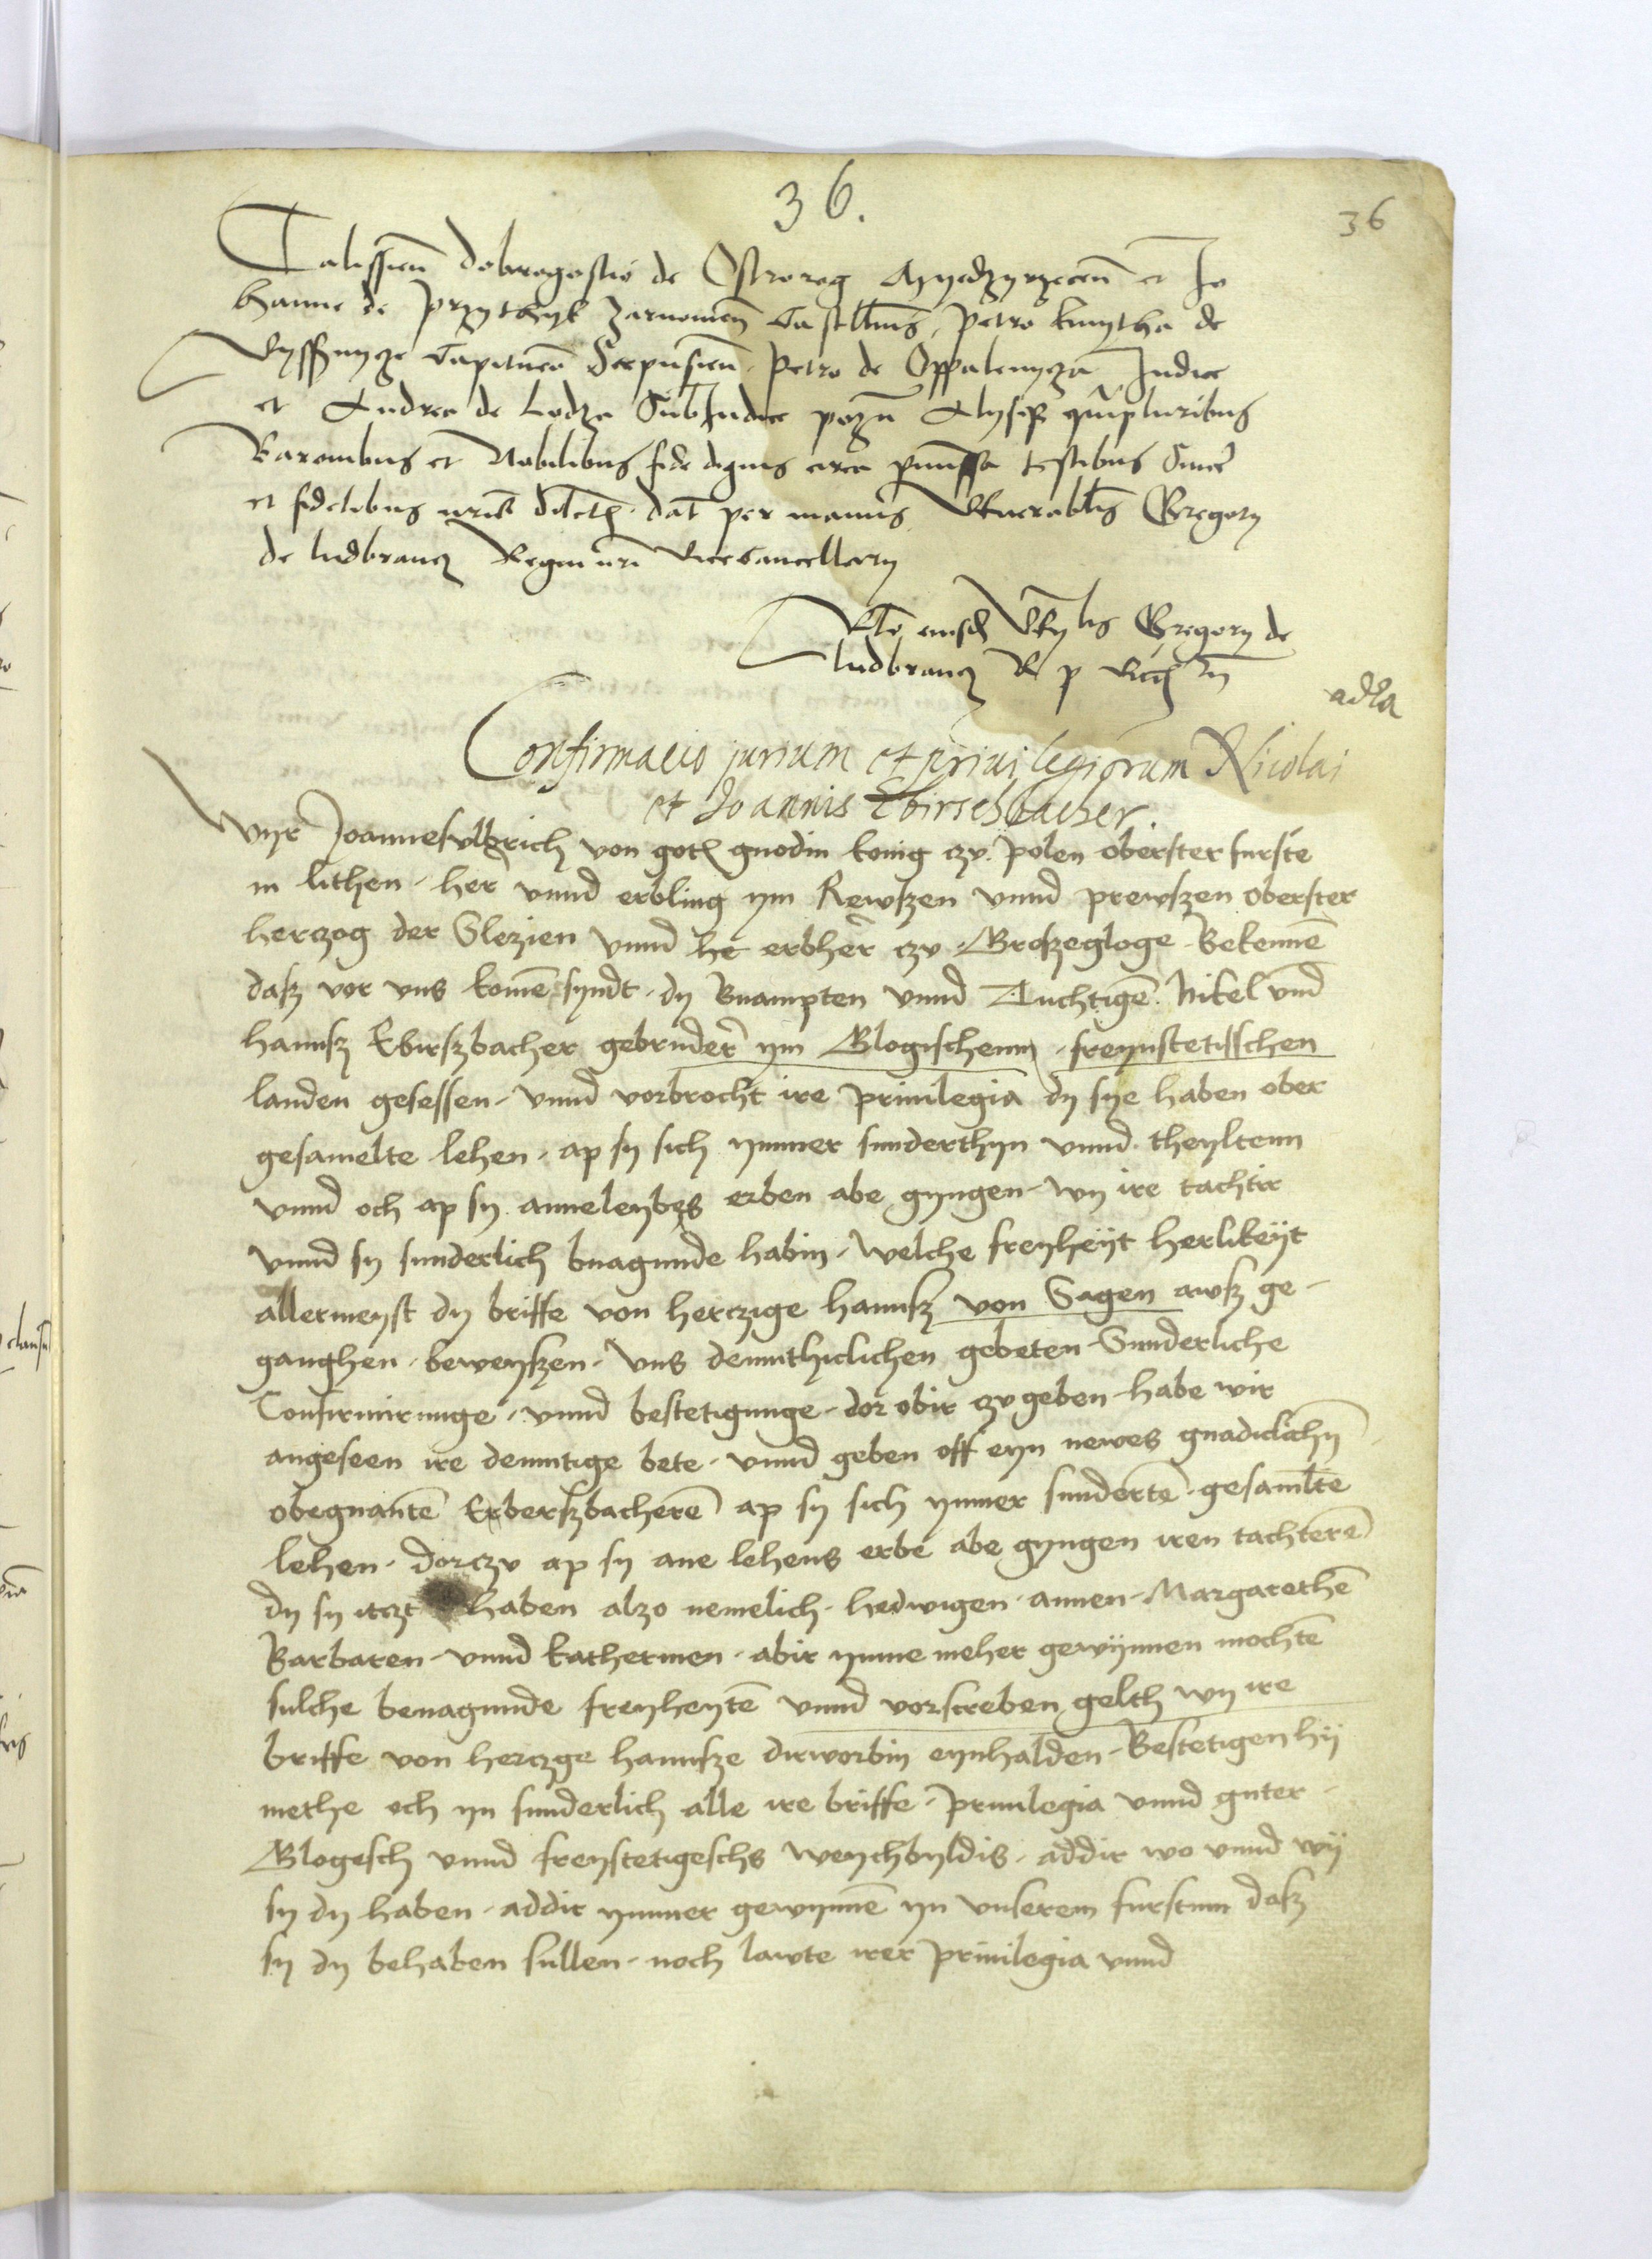 36.
36
Calissien dobrogostio de Ostrorog Myedzyrzecen et Jo
hanne de Przythyk Zarnowien Castellanis, Petro kmytha de
Vyssnycze Capitaneo Scepusien, Petro de Oppalenycza Judice
et Andrea de Lodza Subiudice pozn Alysq quampluribus
Baronibus et Nobilibus fide dignis circa premissa testibus Sincere
et fidelibus nris dilectis. dat per manus Venerabilis Gregory
de ludbrancz Regni nri Vicecancellary
Rlo eiusd Vblis Gregory de
ludbrancz R p Vicecn
Confirmacio jurium et priuilegiorum Nicolai
et Joannis Ebirschbacher.
Wyr Joannesulbrich von gots gnodin konig czu polen oberster furste
in lithen, her vnnd erbling ym Rewszen vnnd prewszen oberster
herczog der Slezien vnnd he erbher czu Groszegloge Bekenne
dasz vor vns kome syndt, dy Bnampten vnnd Tuchtige Nikel vnd
hannsz Ebirszbacher gebruder ym Glogischenn, freynstetisschen
landen gesessen, vnnd vorbrocht ire priuilegia dy sye haben ober
gesamelte lehen, ap sy sich ymmer sunderthyn vnnd theyltenn
vnnd och ap sy anneleybes erben abe gyngen, wy ire tachtir
vnnd sy sunderlich bnagunde habin, welche freyheyt herlikeyt
allermeyst dy briffe von herczige hannsz von Sagen awsz ge-
ganghen, beweyszen, vns demuthiclichen gebeten Sunderliche
Confirmirunge, vnnd bestetigunge, dor obir czu geben, habe wir
angeseen ire demutige bete, vnnd geben off eyn newes gnadiclichn
obegnante Erberszbachere ap sy sich ymmer sunderte gesamlte
lehen, dorczu ap sy ane lehens erbe abe gyngen iren tachtere
dy sy itczt haben alzo nemelich, hedwigen, annen, Margarethe
Barbaren, vnnd katherinen, abir ymme meher gewynnen mochte
sulche benagunde freyheyte vnnd vorscreben gelth wy ire
briffe von herczge hannsze dirworbin eynhalden, Bestetigen hy
methe och yn sunderlich alle ire briffe, priuilegia vnnd guter
Glogesch vnnd freystetigeschs weychbyldis, addir wo vnnd wy
sy dy haben, addir ymmer gewynne yn vnserem furstum dasz
sy dy behaben sullen, noch lawte irer priuilegia vnnd